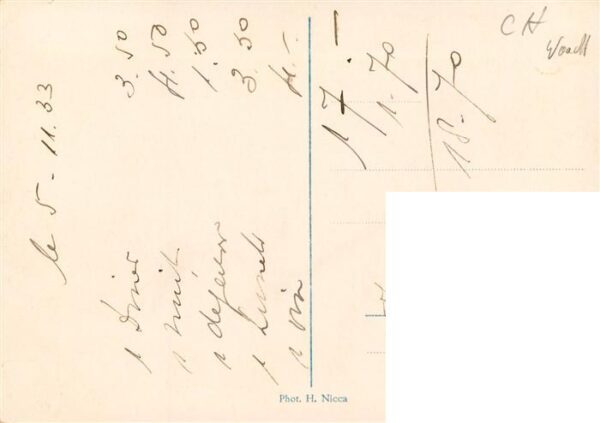 le 5 - 11. 33
1 Diner 3.50
1 nuit 4.50
1 dejeuner 1.50
1 3.50
1 vin 4.-
17.-
1.70
18.70
CH
Phot. H. Nicca